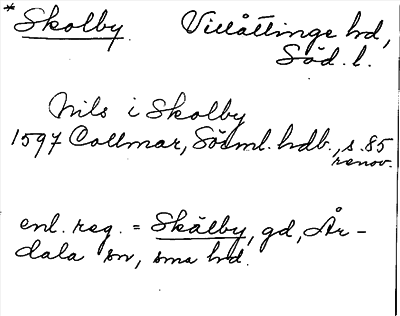 *Skolby. Villåttinge hd,
Söd. l.
Nils i Skolby
1597 Collmar, Sösml. hdb., s. 85
renov.
enl. reg. = Skälby, gd, År-
dala sn, sma hd.